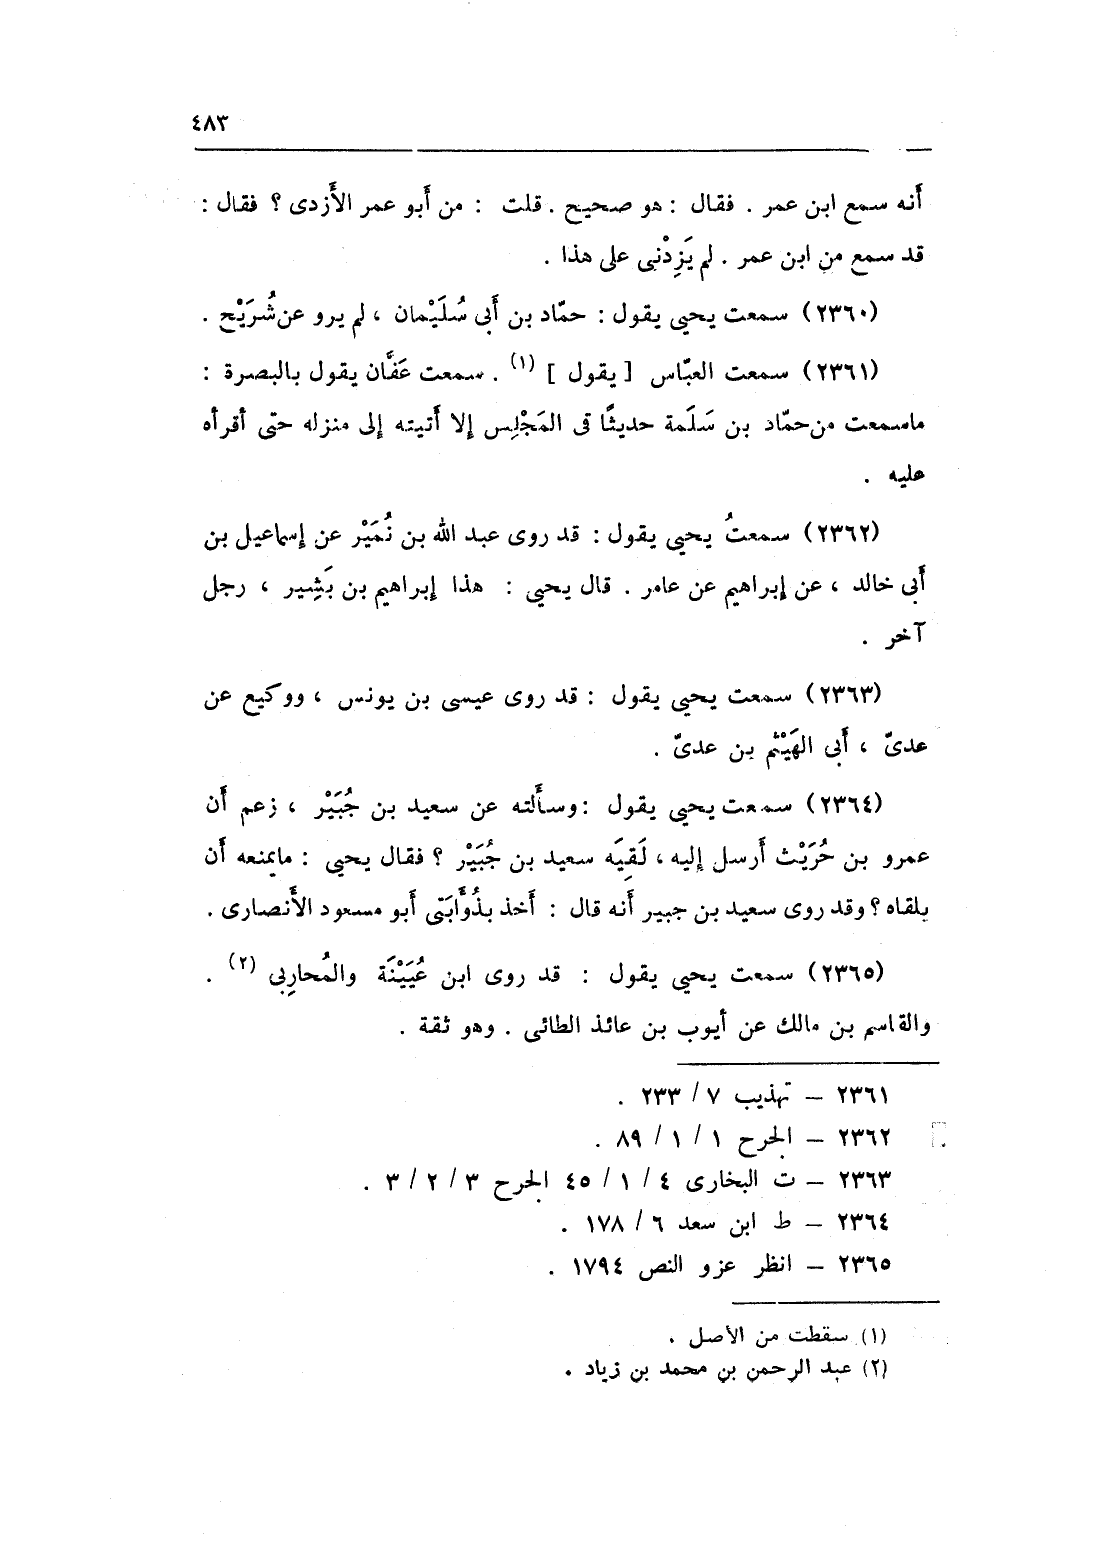 ٤٨٣
أَنه سمع ابن عمر . فقال : هو صحيح . قلت : من أَبو عمر الأَزدى ؟ فقال :
قد سمع من ابن عمر . لم يَزِدْنِى على هذا .
(٢٣٦٠) سمعت يحيى يقول : حمّاد بن أَبى سُلَيْمان ، لم يرو عن شُرَيْح .
(٢٣٦١) سمعت العبّاس [ يقول ] (١) . سمعت عَفَّان يقول بالبصرة :
ماسمعت من حمّاد بن سَلَمة حديثًا فى المَجْلِس إلا أَتيته إلى منزله حتى أقرأه
عليه .
(٢٣٦٢) سمعتُ يحيى يقول : قد روى عبد الله بن نُمَيْر عن إسماعيل بن
أَبى خالد ، عن إبراهيم عن عامر . قال يحيى : هذا إبراهيم بن بَشِير ، رجل
آخر .
(٢٣٦٣) سمعت يحيى يقول : قد روى عيسى بن يونس ، ووكيع عن
عدىّ ، أَبى الهَيْثم بن عدىّ .
(٢٣٦٤) سمعت يحيى يقول : وسأَلته عن سعيد بن جُبَيْر ، زعم أَن
عمرو بن حُرَيْث أَرسل إليه ، لَقِيَه سعيد بن جُبَيْر ؟ فقال يحيى : مايمنعه أَن
يلقاه ؟ وقد روى سعيد بن جبير أَنه قال : أَخذ بذُوَّابَتى أَبو مسعود الأَنصارى .
(٢٣٦٥) سمعت يحيى يقول : قد روى ابن عُيَيْنَة والمُحارِبى (٢) .
والقاسم بن مالك عن أَيوب بن عائذ الطائى . وهو ثقة .
٢٣٦١ – تهذيب ٧ / ٢٣٣ .
٢٣٦٢ – الجرح ١ / ١ / ٨٩ .
٢٣٦٣ – ت البخارى ٤ / ١ / ٤٥ الجرح ٣ / ٢ / ٣ .
٢٣٦٤ – ط ابن سعد ٦ / ١٧٨ .
٢٣٦٥ – انظر عزو النص ١٧٩٤ .
(١) سقطت من الأصل .
(٢) عبد الرحمن بن محمد بن زياد .